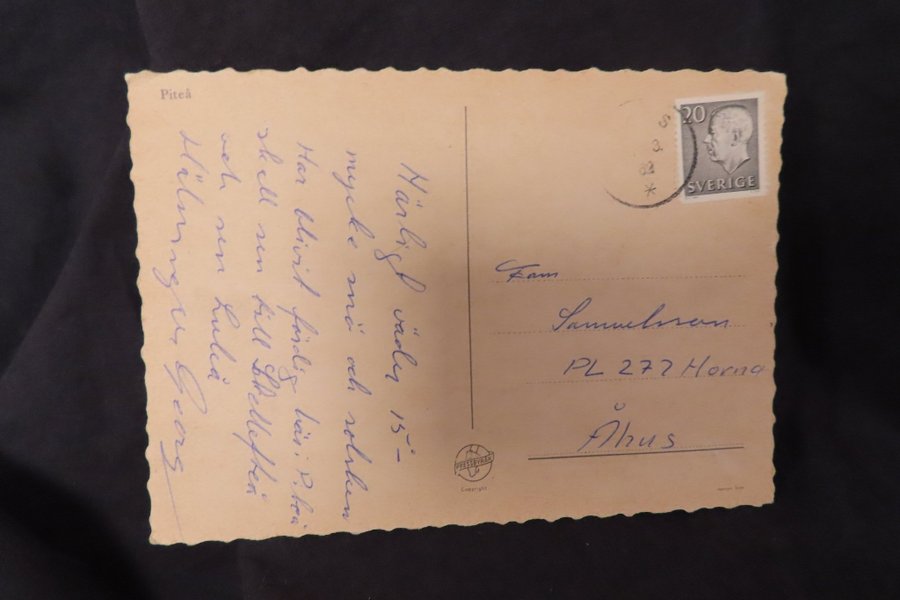 Piteå
Härligt väder 15°-
mycke snö och solsken
Har blivit färdig här i P.teå
skall sen till Skellefteå
och sen Luleå
Hälsningar Georg
20
SVERIGE
5 3 62 *
Fam
Samuelsson
PL 277 Horna
Åhus
PRESSBYRÅN
Copyright